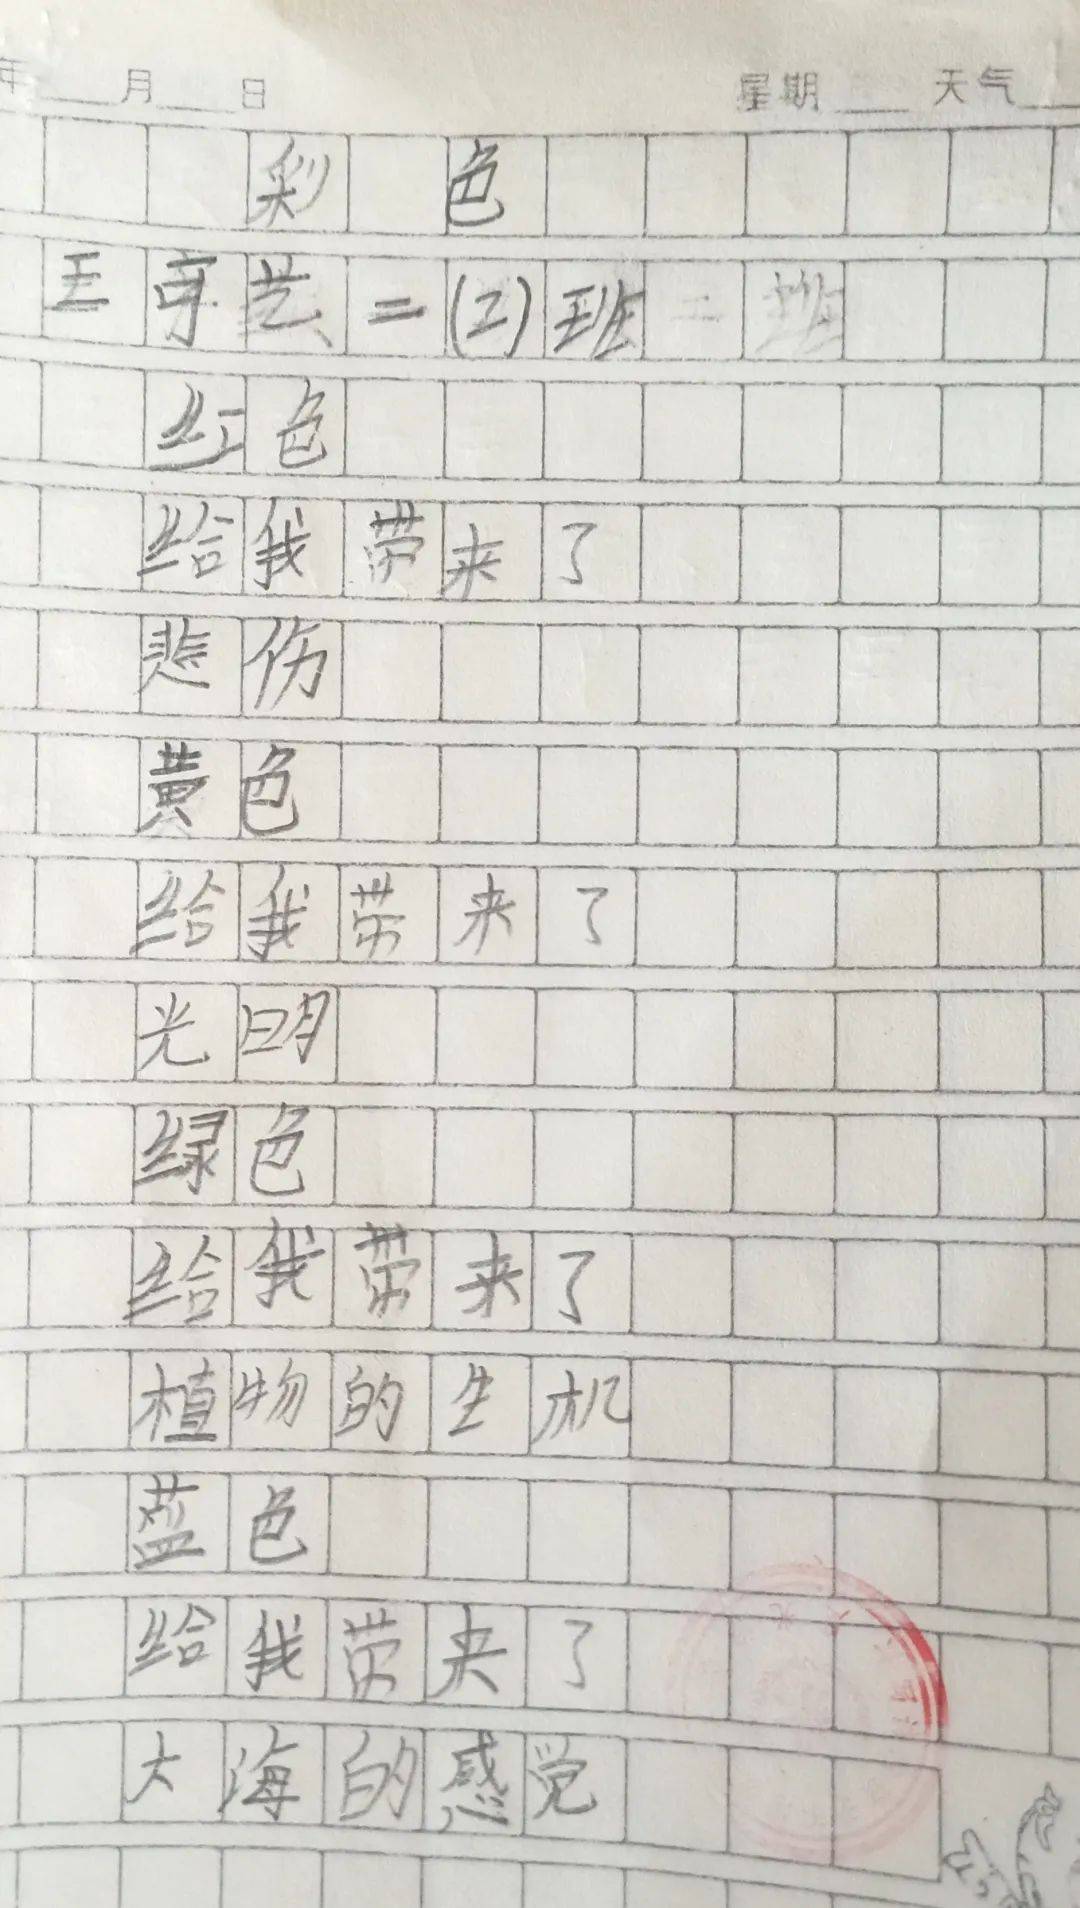 年 月 日 星期 天气
彩 色
王宇艺二(2)班
红色
给我带来了
悲伤
黄色
给我带来了
光明
绿色
给我带来了
植物的生机
蓝色
给我带来了
大海的感觉